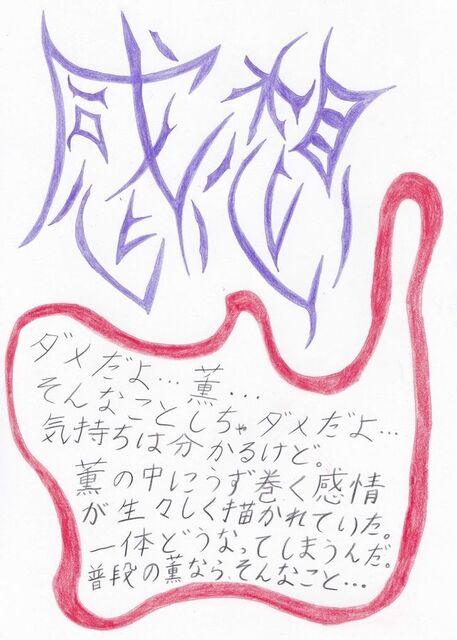 感想
ダメだよ…薫…
そんなことしちゃダメだよ…
気持ちは分かるけど。
薫の中にうず巻く感情
が生々しく描かれていた。
一体どうなってしまうんだ。
普段の薫なら、そんなこと…